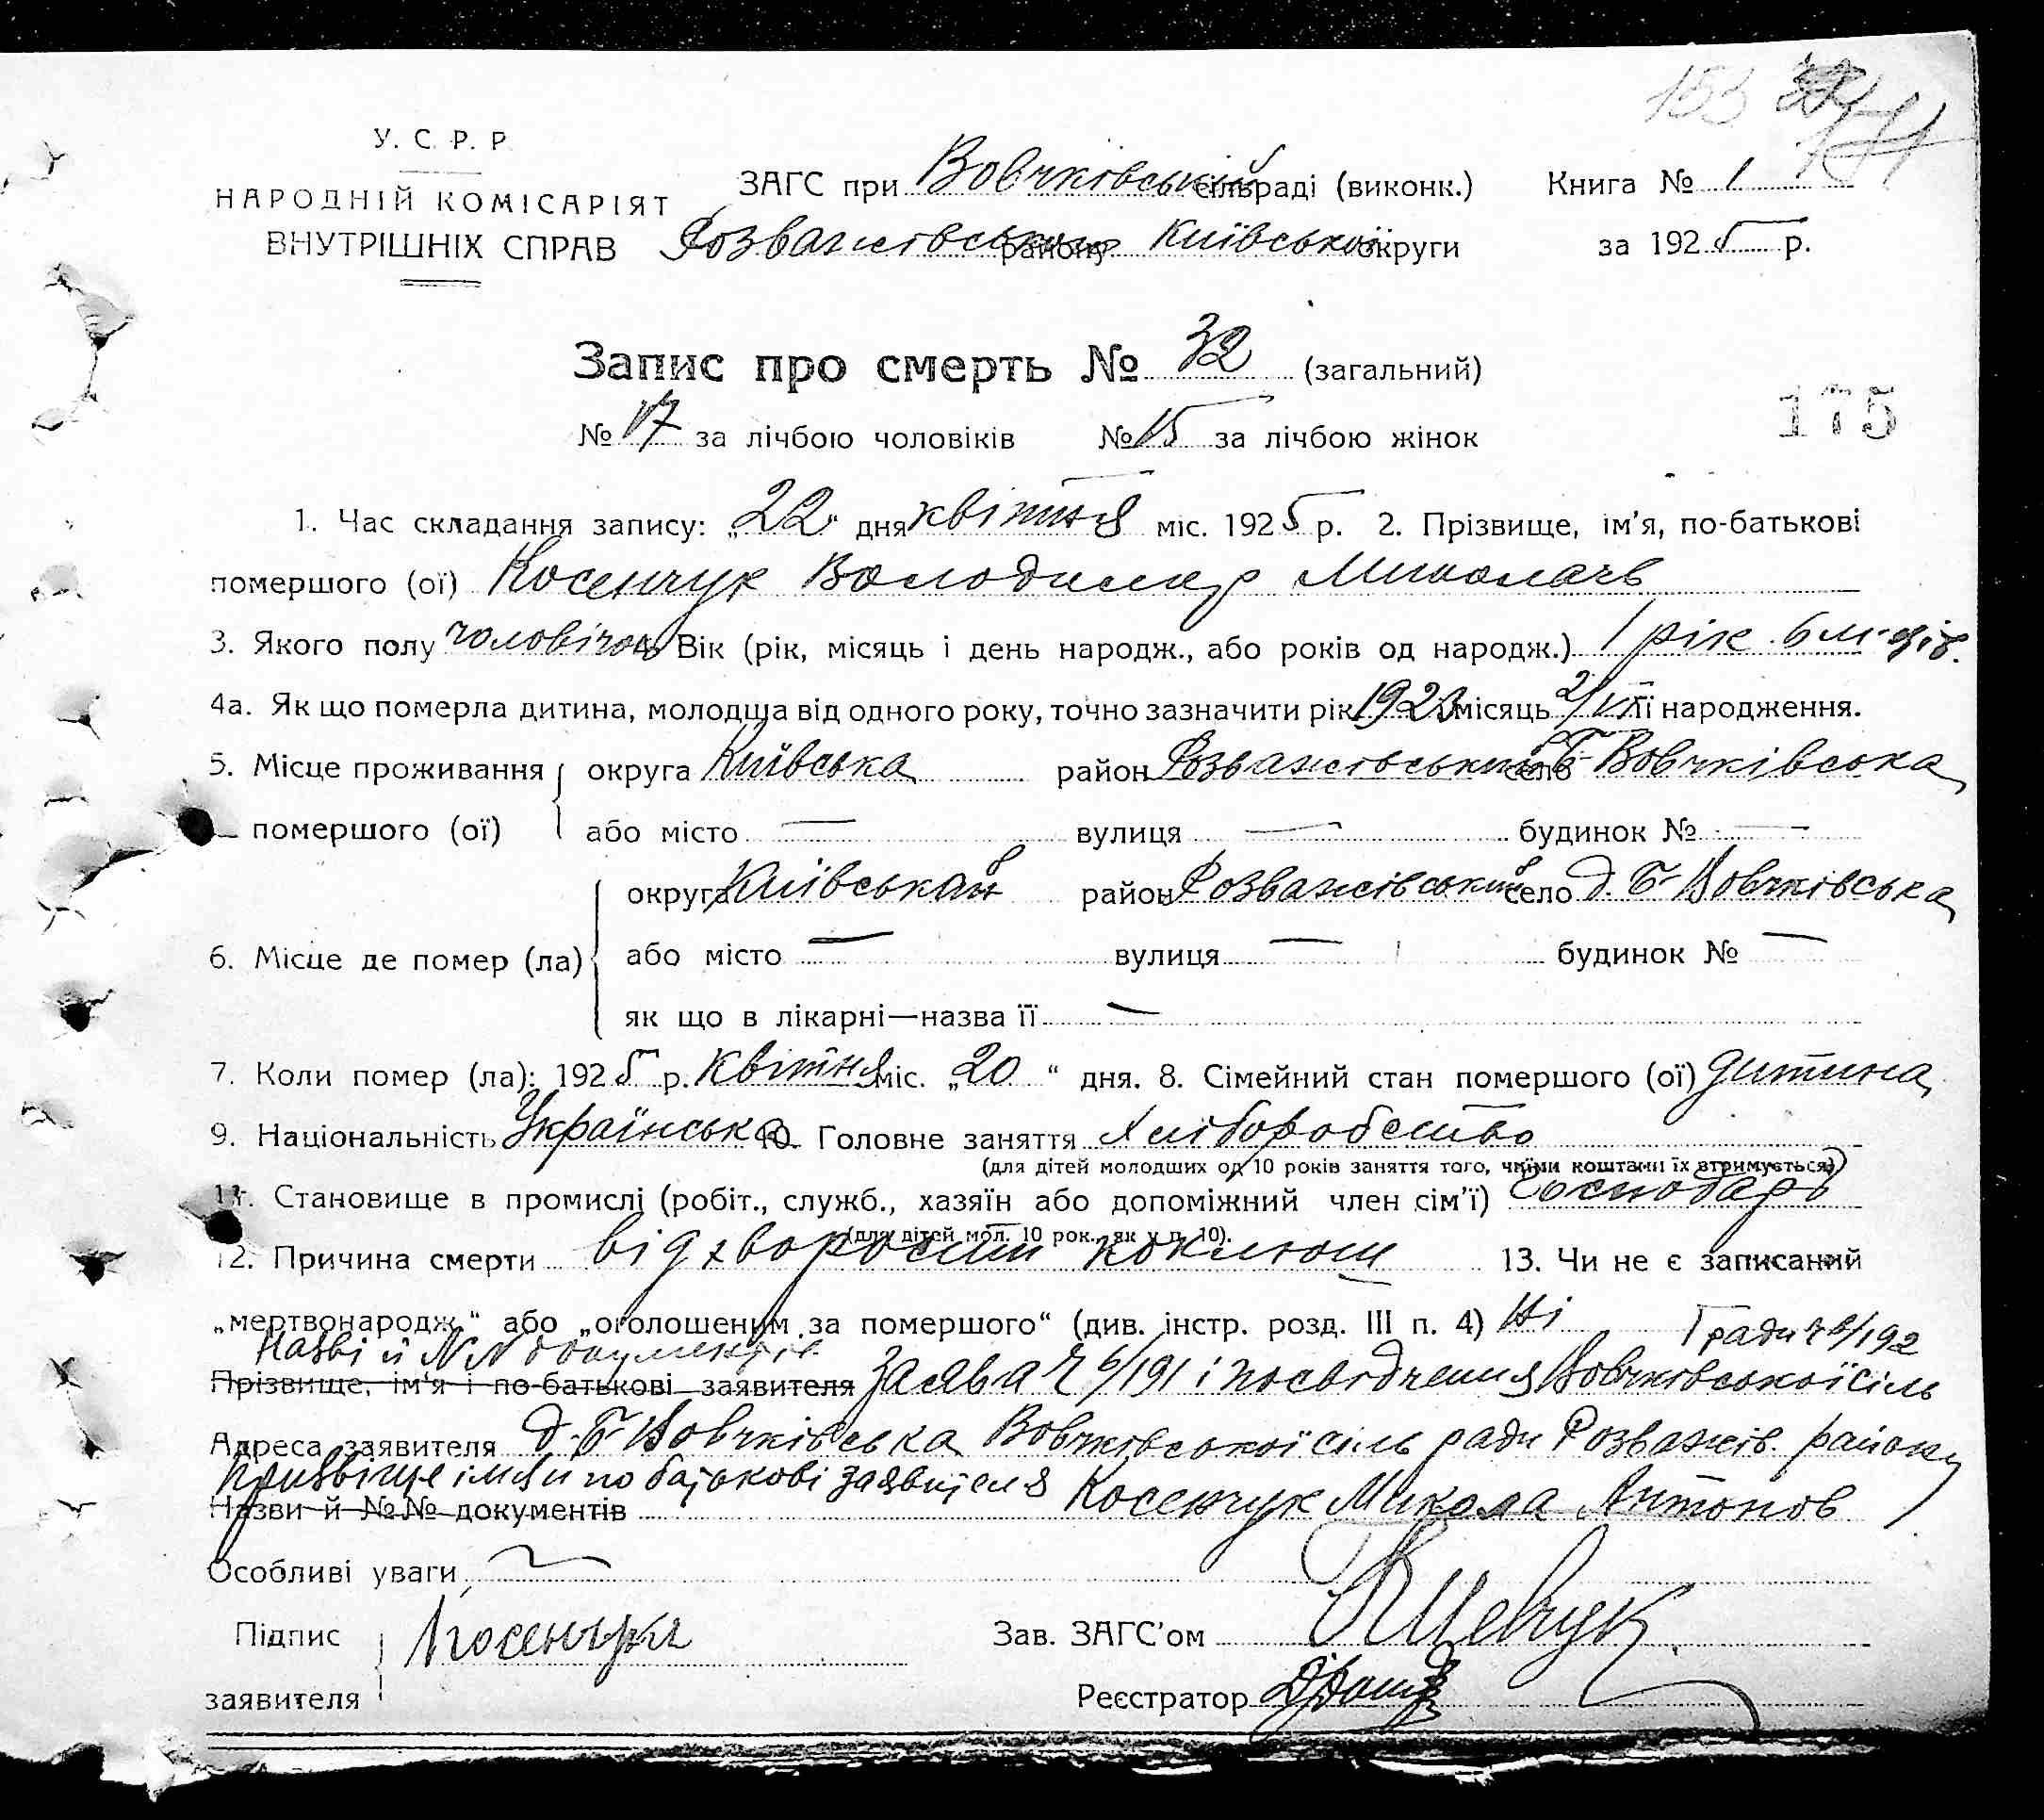 153
У. С. Р. Р.
НАРОДНІЙ КОМІСАРІЯТ
ВНУТРІШНІХ СПРАВ
ЗАГС при Вовчківській сільраді (виконк.) Книга № 1
Розважівського району Київської округи за 1925 р.
Запис про смерть № 32 (загальний)
№ 17 за лічбою чоловіків № 15 за лічбою жінок
175
1. Час складання запису: „22“ дня квітня міс. 1925 р. 2. Прізвище, ім’я, по-батькові
помершого (ої) Косенчук Володимир Миколаєв
3. Якого полу чоловічого 4. Вік (рік, місяць і день народж., або років од народж.) 1 рік 6 м-ців.
4а. Як що померла дитина, молодша від одного року, точно зазначити рік 1923 місяць її народження.
5. Місце проживання помершого (ої) округа Київська район Розважівський село Вовчківська
або місто — вулиця — будинок № —
6. Місце де помер (ла) округа Київська район Розважівський село д. Б-Вовчківська
або місто — вулиця — будинок № —
як що в лікарні—назва її —
7. Коли помер (ла): 1925 р. квітня міс. „20“ дня. 8. Сімейний стан помершого (ої) дитина
9. Національність Українська 10. Головне заняття Хліборобство
(для дітей молодших од 10 років заняття того, чиїми коштами їх втримується)
11. Становище в промислі (робіт., служб., хазяїн або допоміжний член сім’ї) Господарь
(для дітей мол. 10 рок., як у п. 10).
12. Причина смерти від хворости коклюш 13. Чи не є записаний
„мертвонародж.“ або „оголошеним за помершого“ (див. інстр. розд. III п. 4) Ні
Назви й №№ документів ради ч 6/192
Прізвище, ім’я і по-батькові заявителя Заява ч 6/191 і посвідчення Вовчківської сіль
Адреса заявителя д. Б-Вовчківська Вовчківської сіль ради Розважів. району
Призвіще імя и по батькові заявителя Косенчук Микола Антонов
Назви й №№ документів
Особливі уваги
Підпис заявителя Косенчук Зав. ЗАГС’ом Шевчук
Реєстратор